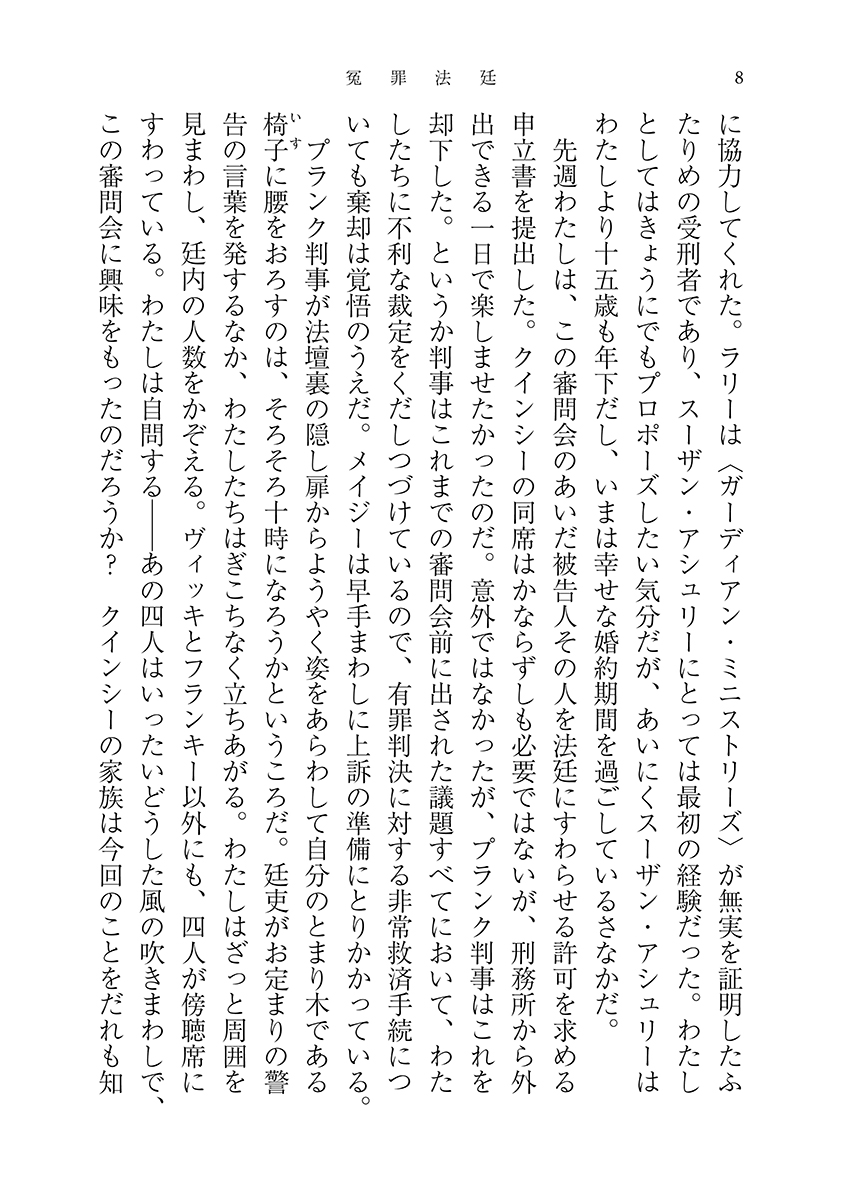 冤罪法廷
8
に協力してくれた。ラリーは〈ガーディアン・ミニストリーズ〉が無実を証明したふ
たりめの受刑者であり、スーザン・アシュリーにとっては最初の経験だった。わたし
としてはきょうにでもプロポーズしたい気分だが、あいにくスーザン・アシュリーは
わたしより十五歳も年下だし、いまは幸せな婚約期間を過ごしているさなかだ。
　先週わたしは、この審問会のあいだ被告人その人を法廷にすわらせる許可を求める
申立書を提出した。クインシーの同席はかならずしも必要ではないが、刑務所から外
出できる一日で楽しませたかったのだ。意外ではなかったが、プランク判事はこれを
却下した。というか判事はこれまでの審問会前に出された議題すべてにおいて、わた
したちに不利な裁定をくだしつづけているので、有罪判決に対する非常救済手続につ
いても棄却は覚悟のうえだ。メイジーは早手まわしに上訴の準備にとりかかっている。
　プランク判事が法壇裏の隠し扉からようやく姿をあらわして自分のとまり木である
椅子いすに腰をおろすのは、そろそろ十時になろうかというころだ。廷吏がお定まりの警
告の言葉を発するなか、わたしたちはぎこちなく立ちあがる。わたしはざっと周囲を
見まわし、廷内の人数をかぞえる。ヴィッキとフランキー以外にも、四人が傍聴席に
すわっている。わたしは自問する――あの四人はいったいどうした風の吹きまわしで、
この審問会に興味をもったのだろうか？　クインシーの家族は今回のことをだれも知